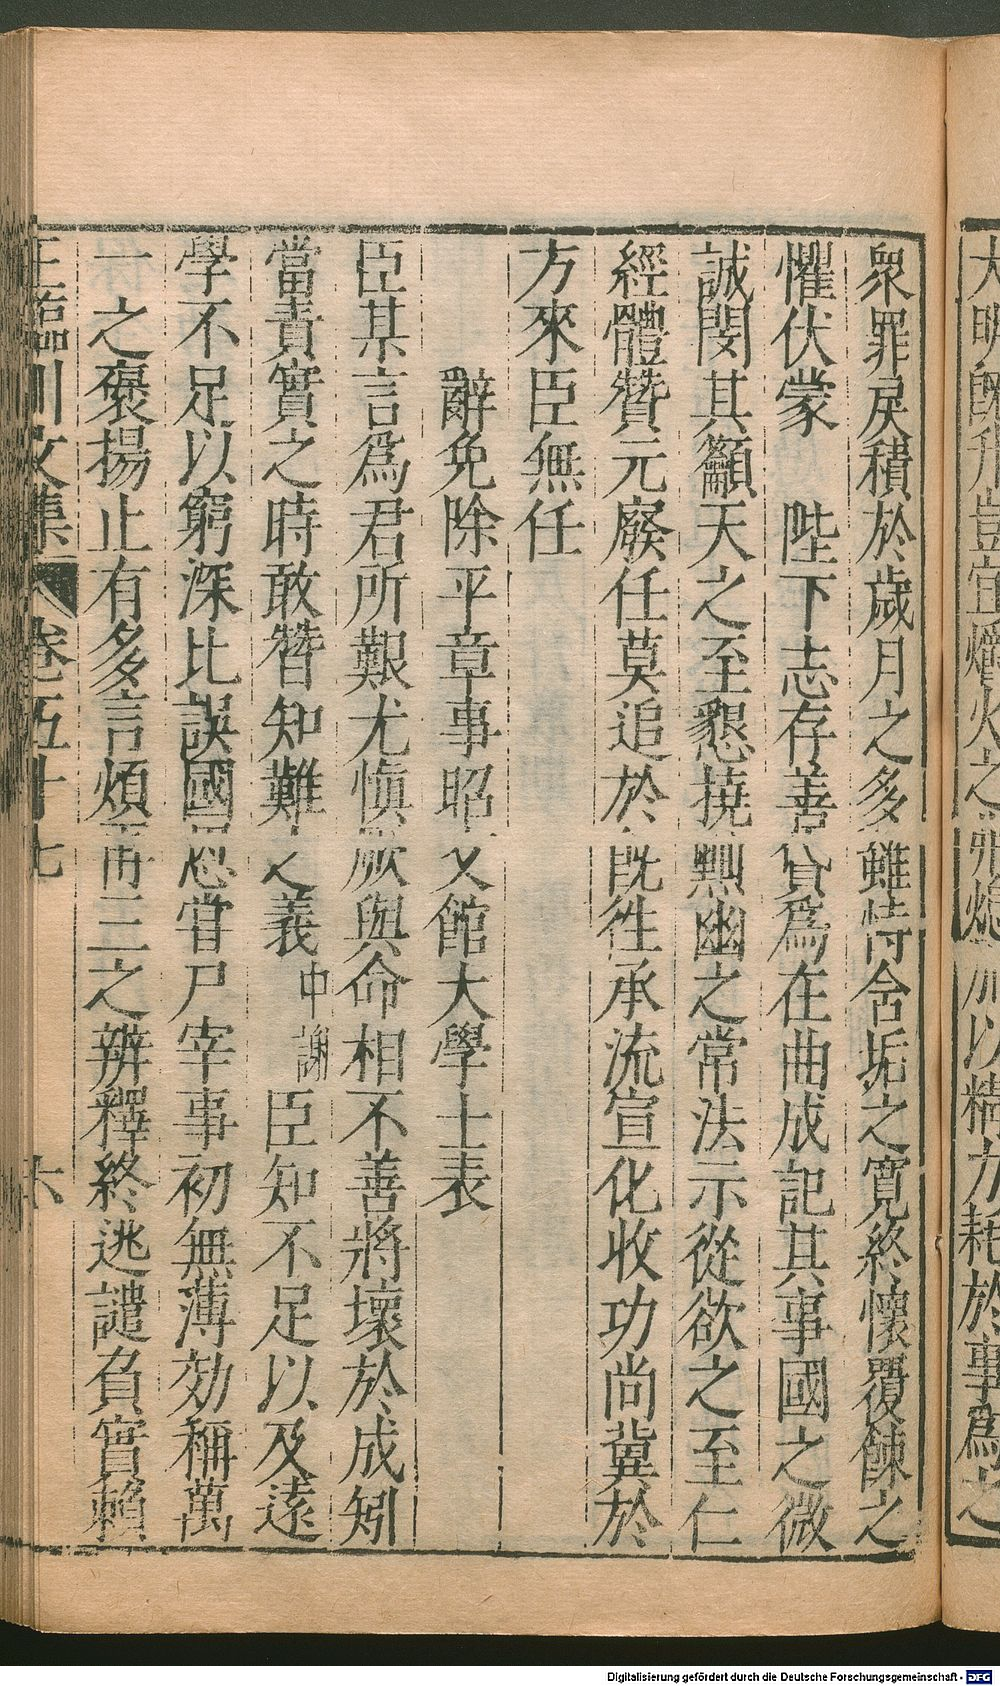 大明既升豈宜爝火之
加以精力耗於事爲之
衆罪戾積於歲月之多雖恃含垢之寬終懷覆餗之
懼伏蒙　陛下志存善貸爲在曲成記其事國之微
誠閔其籲天之至懇撓黜幽之常法示從欲之至仁
經體贊元廢任莫追於既徃承流宣化收功尚冀於
方來臣無任
辭免除平章事昭文館大學士表
臣某言爲君所艱尤愼厥與命相不善將壞於成矧
當責實之時敢朁知難之義中謝臣知不足以及遠
學不足以窮深比誤國恩甞尸宰事初無薄効稱萬
一之襃揚止有多言煩再三之辨釋終逃譴負實賴
王臨川文集　卷五十七　六
Digitalisierung gefördert durch die Deutsche Forschungsgemeinschaft - DFG